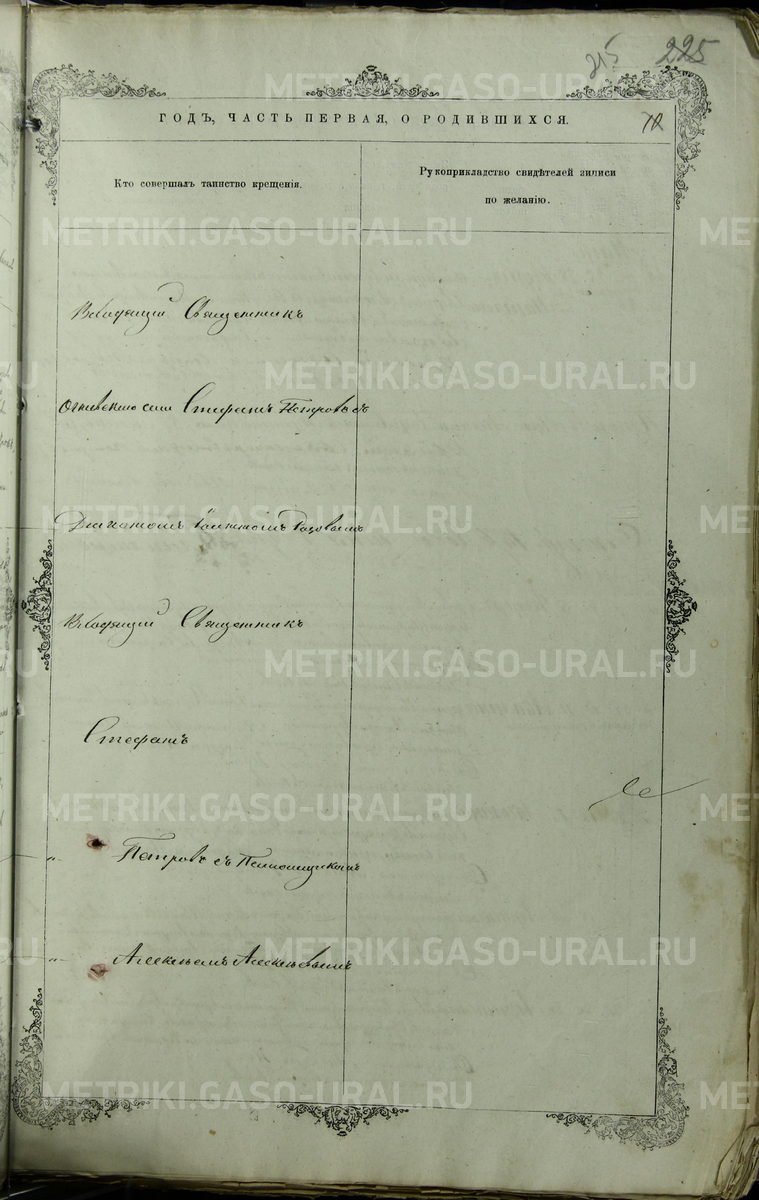 215 225
ГОДЪ, ЧАСТЬ ПЕРВАЯ, О РОДИВШИХСЯ.
Кто совершалъ таинство крещенія.
Рукоприкладство свидѣтелей записи
по желанію.
Священникъ
Стефанъ Петровъ съ
Діакономъ
Священникъ
Стефанъ
Петровъ съ
Алексѣемъ Алексѣевымъ
METRIKI.GASO-URAL.RU